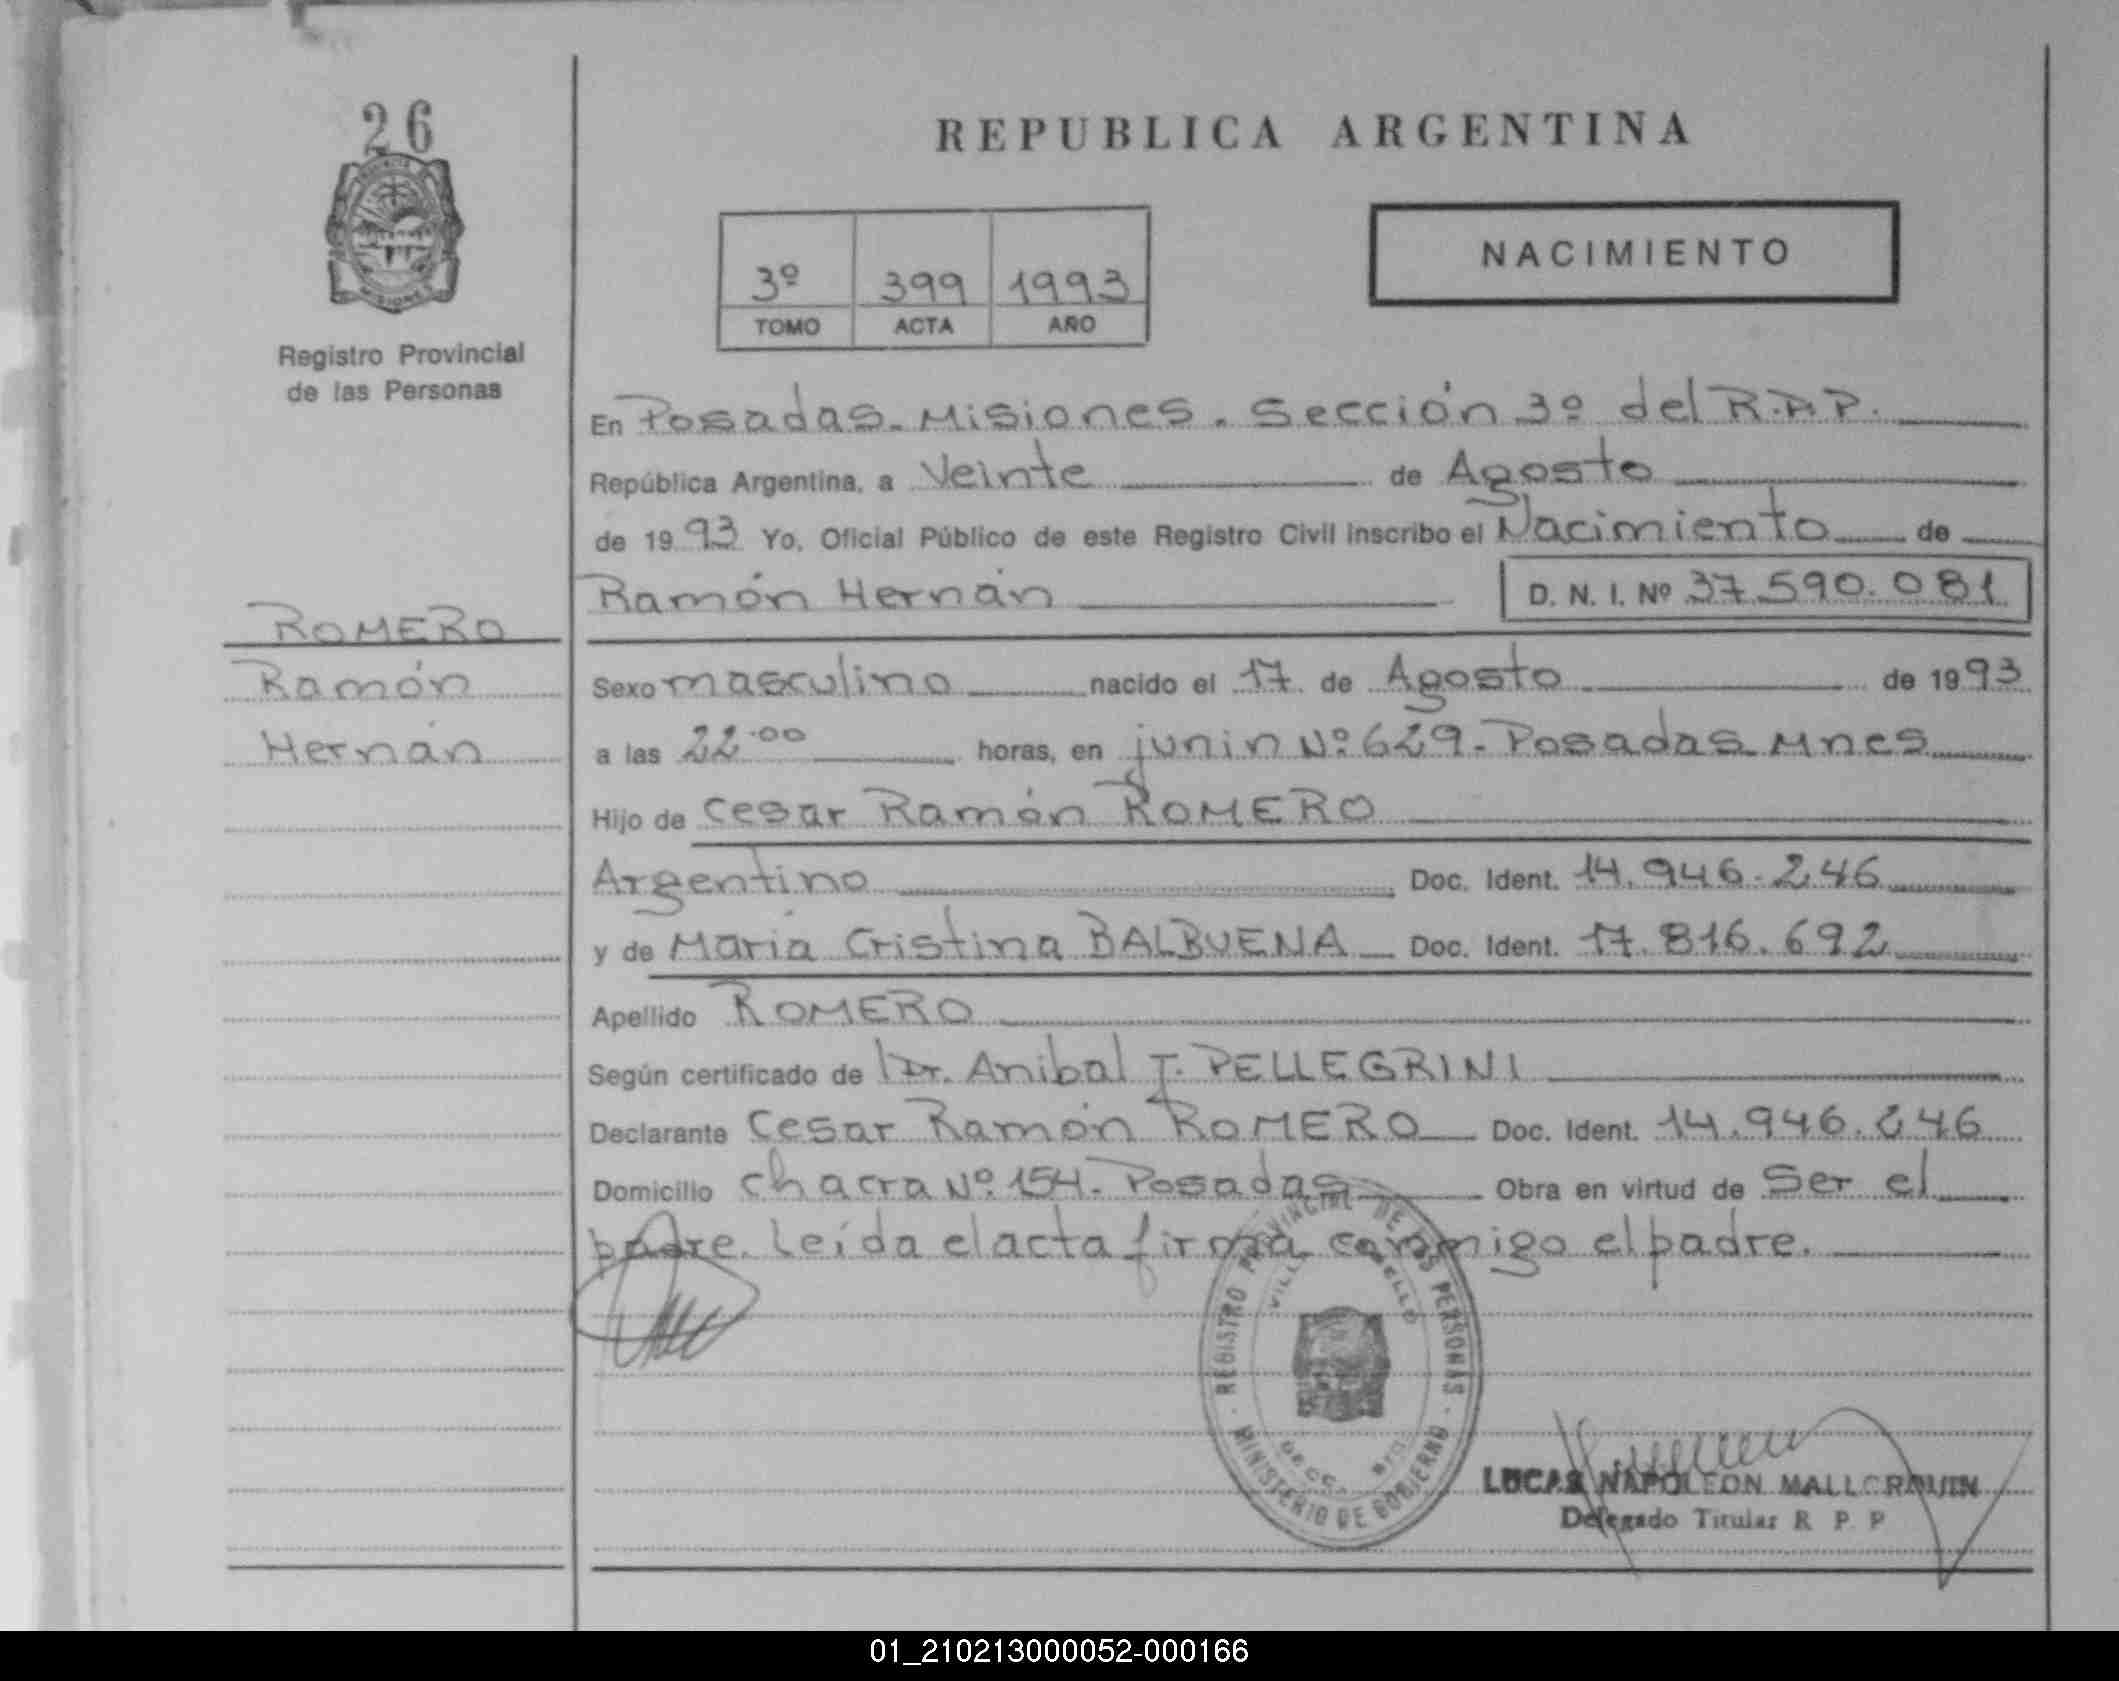 26
Registro Provincial
de las Personas
REPUBLICA ARGENTINA
3º 399 1993
TOMO ACTA AÑO
NACIMIENTO
En Posadas. Misiones. Sección 3º del R.P.P.
República Argentina, a Veinte de Agosto
de 1993 Yo, Oficial Público de este Registro Civil inscribo el Nacimiento de
Ramón Hernán D. N. I. Nº 37.590.081
ROMERO
Ramón
Hernán
Sexo masculino nacido el 17 de Agosto de 1993
a las 22.00 horas, en junin Nº 629. Posadas Mnes
Hijo de Cesar Ramón ROMERO
Argentino Doc. Ident. 14.946.246
y de María Cristina BALBUENA Doc. Ident. 17.816.692
Apellido ROMERO
Según certificado de Dr. Anibal J. PELLEGRINI
Declarante Cesar Ramón ROMERO Doc. Ident. 14.946.246
Domicilio chacra Nº 154. Posadas Obra en virtud de Ser el
padre. Leída el acta firma conmigo el padre.
REGISTRO PROVINCIAL DE LAS PERSONAS
MINISTERIO DE GOBIERNO
LUCAS NAPOLEON MALLORQUIN
Delegado Titular R P P
01_210213000052-000166